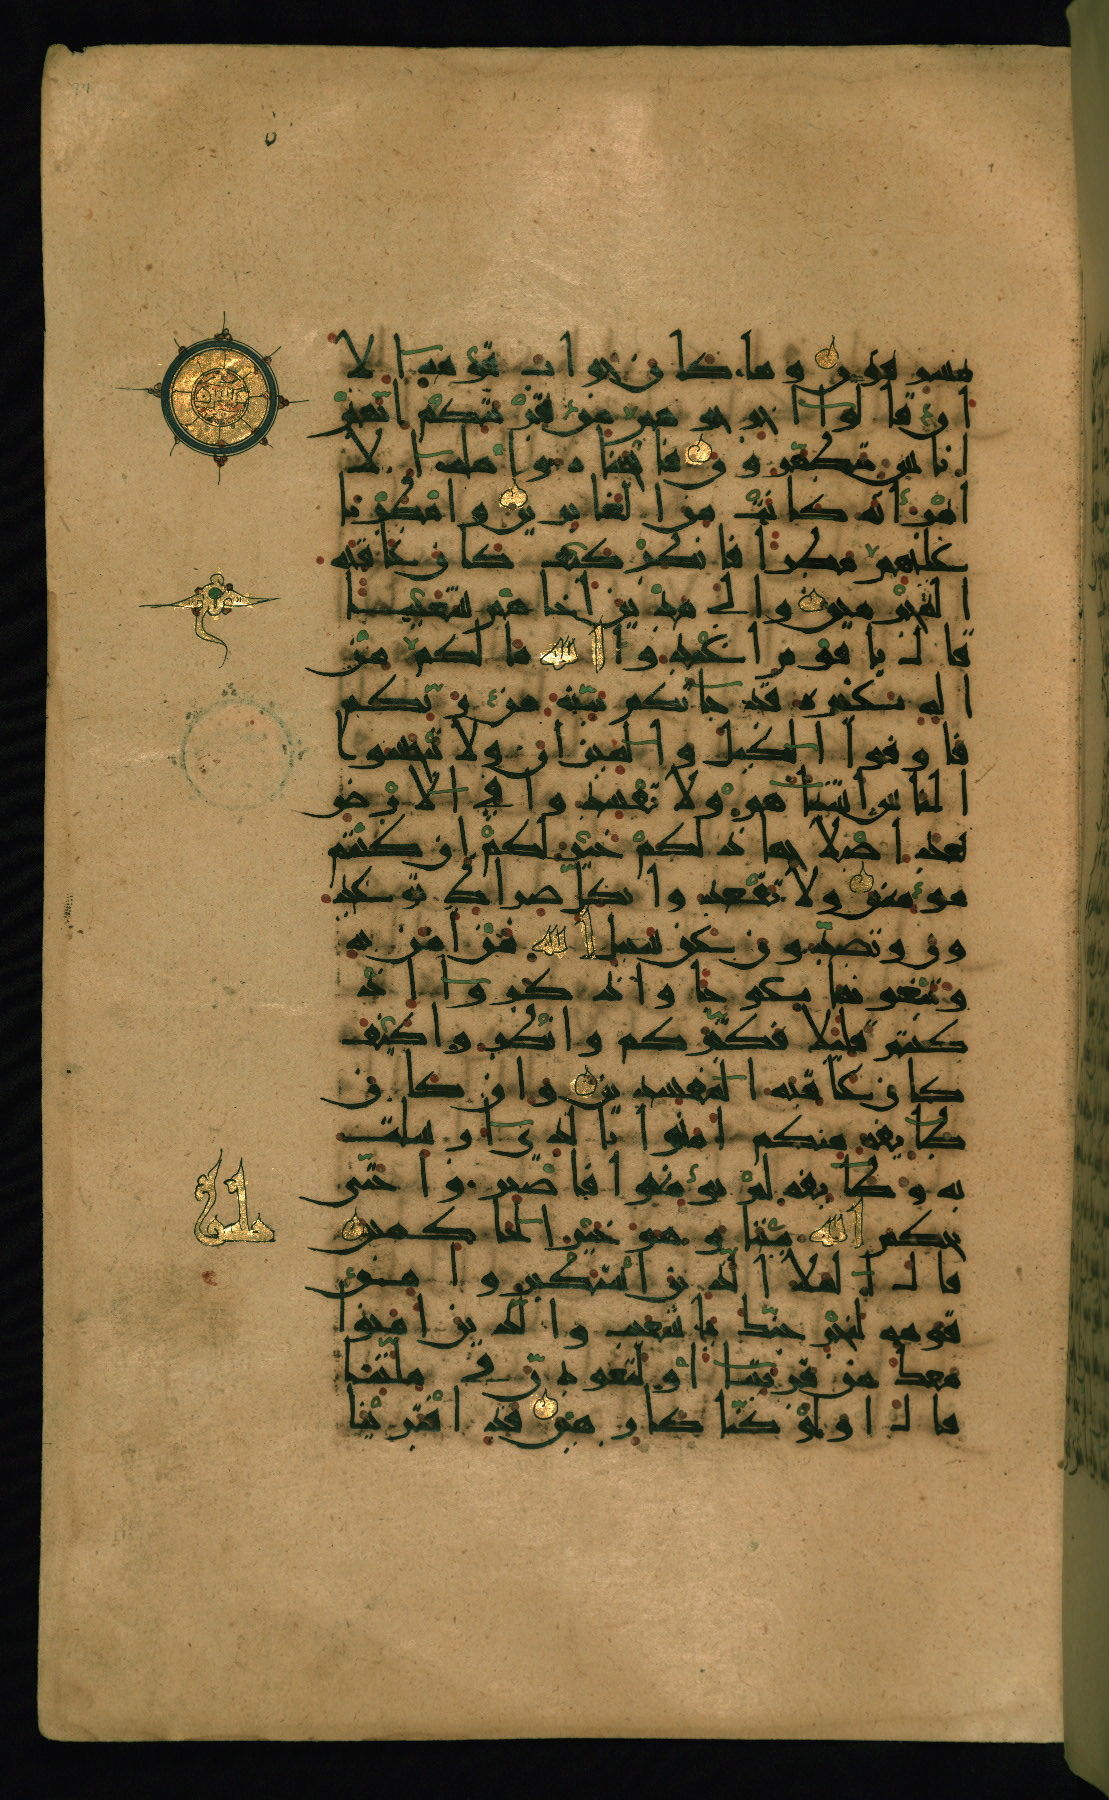 مسرفون وما كان جواب قومه الا
ان قالوا اخرجوهم من قريتكم انهم
اناس يتطهرون فانجيناه واهله الا
امراته كانت من الغابرين وامطرنا
عليهم مطرا فانظر كيف كان عاقبة
المجرمين والى مدين اخاهم شعيبا
قال يا قوم اعبدوا الله ما لكم من
اله غيره قد جاتكم بينة من ربكم
فاوفوا الكيل والميزان ولا تبخسوا
الناس اشياهم ولا تفسدوا في الارض
بعد اصلاحها ذلكم خير لكم ان كنتم
مومنين ولا تقعدوا بكل صراط توعد
ون وتصدون عن سبيل الله من امن به
وتبغونها عوجا واذكروا اذ
كنتم قليلا فكثركم وانظروا كيف
كان عاقبة المفسدين وان كان
طايفة منكم امنوا بالذي ارسلت
به وطايفة لم يومنوا فاصبروا حتى
يحكم الله بيننا وهو خير الحاكمين
قال الملا الذين استكبروا من
قومه لنخرجنك يا شعيب والذين امنوا
معك من قريتنا او لتعودن في ملتنا
قال اولو كنا كارهين قد افترينا